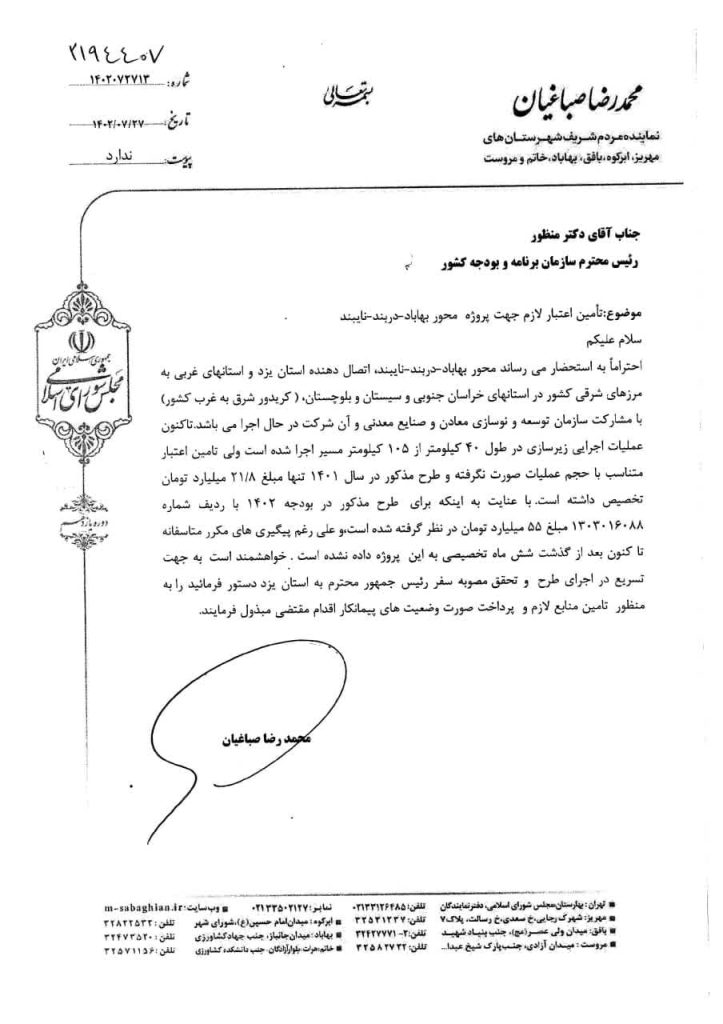 ۲۱۹٤٤۰۷
بسمه تعالی
شماره: ۱۴۰۲۰۷۲۷۱۳
تاریخ: ۱۴۰۲/۰۷/۲۷
پیوست: ندارد
محمدرضا صباغیان
نماینده مردم شریف شهرستان های
مهریز، ابرکوه، بافق، بهاباد، خاتم و مروست
جناب آقای دکتر منظور
رئیس محترم سازمان برنامه و بودجه کشور
موضوع:تأمین اعتبار لازم جهت پروژه محور بهاباد-دربند-نایبند
سلام علیکم
احتراماً به استحضار می رساند محور بهاباد-دربند-نایبند، اتصال دهنده استان یزد و استانهای غربی به
مرزهای شرقی کشور در استانهای خراسان جنوبی و سیستان و بلوچستان، ( کریدور شرق به غرب کشور)
با مشارکت سازمان توسعه و نوسازی معادن و صنایع معدنی و آن شرکت در حال اجرا می باشد.تاکنون
عملیات اجرایی زیرسازی در طول ۴۰ کیلومتر از ۱۰۵ کیلومتر مسیر اجرا شده است ولی تامین اعتبار
متناسب با حجم عملیات صورت نگرفته و طرح مذکور در سال ۱۴۰۱ تنها مبلغ ۲۱/۸ میلیارد تومان
تخصیص داشته است. با عنایت به اینکه برای طرح مذکور در بودجه ۱۴۰۲ با ردیف شماره
۱۳۰۳۰۱۶۰۸۸ مبلغ ۵۵ میلیارد تومان در نظر گرفته شده است،و علی رغم پیگیری های مکرر متاسفانه
تا کنون بعد از گذشت شش ماه تخصیصی به این پروژه داده نشده است . خواهشمند است به جهت
تسریع در اجرای طرح و تحقق مصوبه سفر رئیس جمهور محترم به استان یزد دستور فرمائید را به
منظور تامین منابع لازم و پرداخت صورت وضعیت های پیمانکار اقدام مقتضی مبذول فرمایند.
محمد رضا صباغیان
جمهوری اسلامی ایران
مجلس شورای اسلامی
دوره یازدهم
تهران: بهارستان،مجلس شورای اسلامی، دفتر نمایندگان تلفن: ۰۲۱۳۳۱۲۶۴۸۵ نمابر: ۰۲۱۳۳۵۰۲۱۲۷ وب سایت: m-sabaghian.ir
مهریز: شهرک رجایی،خ سعدی،خ رسالت، پلاک۷ تلفن: ۳۲۵۳۱۲۳۷ ابرکوه: میدان امام حسین(ع)،شورای شهر تلفن: ۳۲۸۲۲۵۳۲
بافق: میدان ولی عصر(عج)، جنب بنیاد شهید تلفن: ۲-۳۲۴۲۷۷۷۱ بهاباد: میدان جانباز، جنب جهاد کشاورزی تلفن: ۳۲۴۷۳۵۲۰
مروست: میدان آزادی، جنب پارک شیخ عبدا... تلفن: ۳۲۵۸۲۷۲۲ خاتم:هرات-بلوارآزادگان- جنب دانشکده کشاورزی تلفن: ۳۲۵۷۱۱۵۶